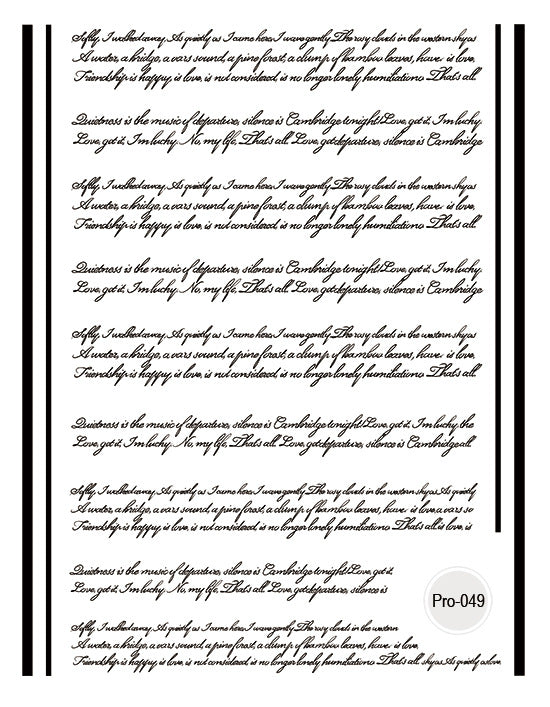 Softly, I walked away, As quietly as I came here, I wave gently, The rosy clouds in the western sky as
A water, a bridge, a vars sound, a pine forest, a clump of bamboo leaves, have is love,
Friendship is happy, is love, is not considered, is no longer lonely humdiationo That's all
Quietness is the music of departure, silence is Cambridge tonight! Love, got it, Im lucky,
Love, got it, Im lucky. No, my life, That's all. Love, got departure, silence is Cambridge
Softly, I walked away, As quietly as I came here, I wave gently, The rosy clouds in the western sky as
A water, a bridge, a vars sound, a pine forest, a clump of bamboo leaves, have is love,
Friendship is happy, is love, is not considered, is no longer lonely humdiationo That's all
Quietness is the music of departure, silence is Cambridge tonight! Love, got it, Im lucky,
Love, got it, Im lucky. No, my life, That's all. Love, got departure, silence is Cambridge
Softly, I walked away, As quietly as I came here, I wave gently, The rosy clouds in the western sky as
A water, a bridge, a vars sound, a pine forest, a clump of bamboo leaves, have is love,
Friendship is happy, is love, is not considered, is no longer lonely humdiationo That's all
Quietness is the music of departure, silence is Cambridge tonight! Love, got it, Im lucky, the
Love, got it, Im lucky. No, my life, That's all. Love, got departure, silence is Cambridge all
Softly, I walked away, As quietly as I came here, I wave gently, The rosy clouds in the western sky as As quietly
A water, a bridge, a vars sound, a pine forest, a clump of bamboo leaves, have is love, a vars so
Friendship is happy, is love, is not considered, is no longer lonely humdiationo That's all is love, is
Quietness is the music of departure, silence is Cambridge tonight! Love, got it,
Love, got it, Im lucky. No, my life, That's all. Love, got departure, silence is
Pro-049
Softly, I walked away, As quietly as I came here, I wave gently, The rosy clouds in the western
A water, a bridge, a vars sound, a pine forest, a clump of bamboo leaves, have is love,
Friendship is happy, is love, is not considered, is no longer lonely humdiationo That's all, sky as As quietly as love,